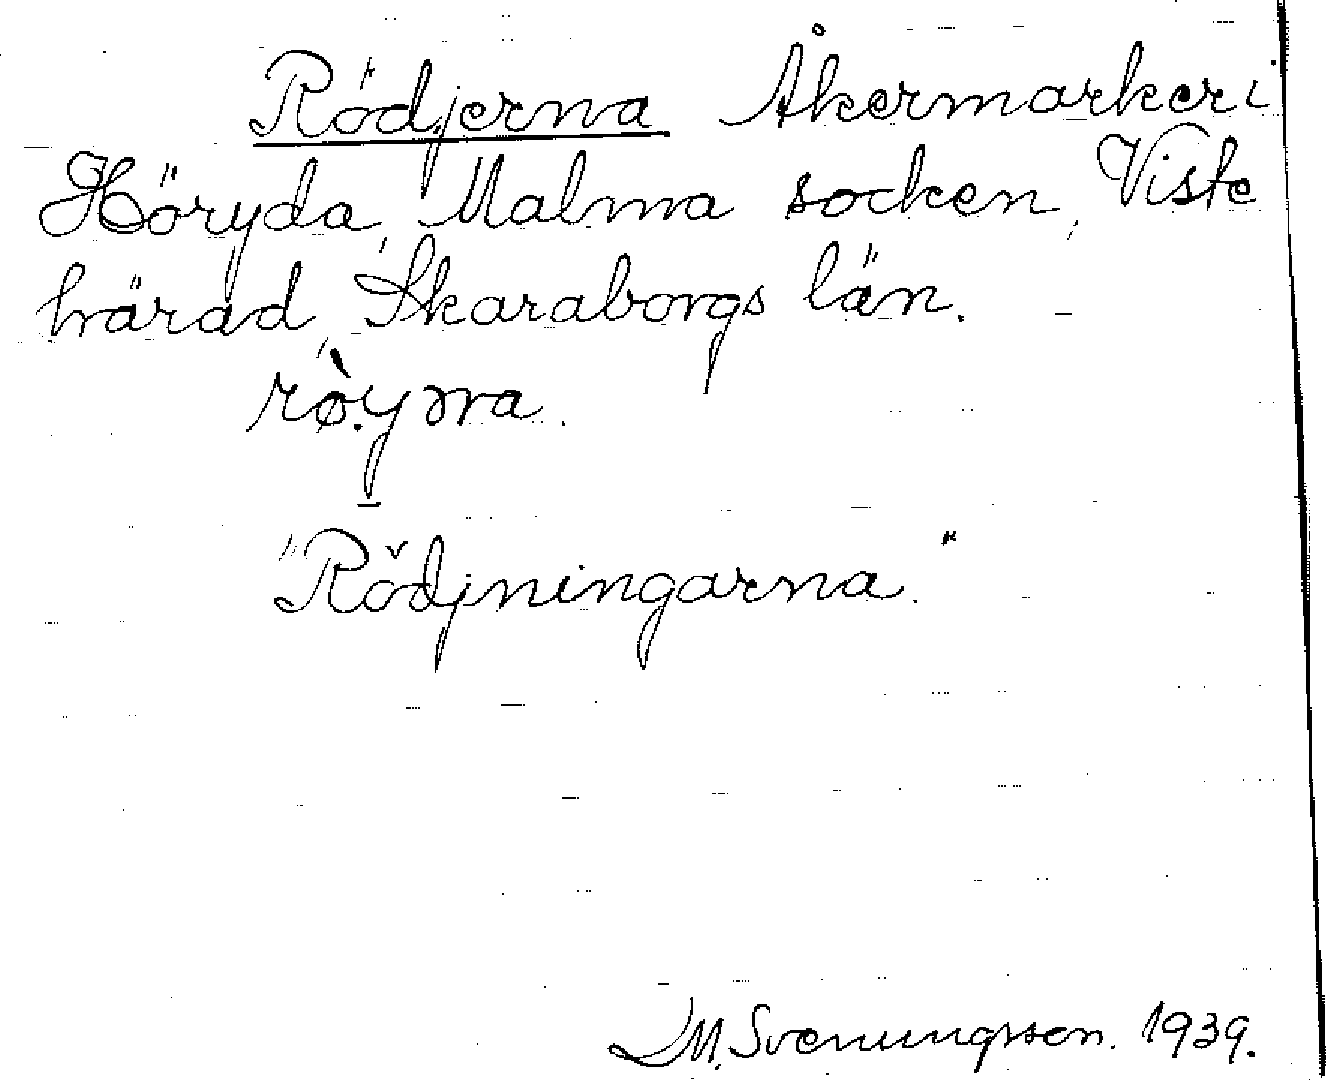 Rödjerna Åkermarker i
Höryda, Malma socken, Viste
härad, Skaraborgs län.
rø̀yəna.
"Rödjningarna."
M. Svenungsson. 1939.